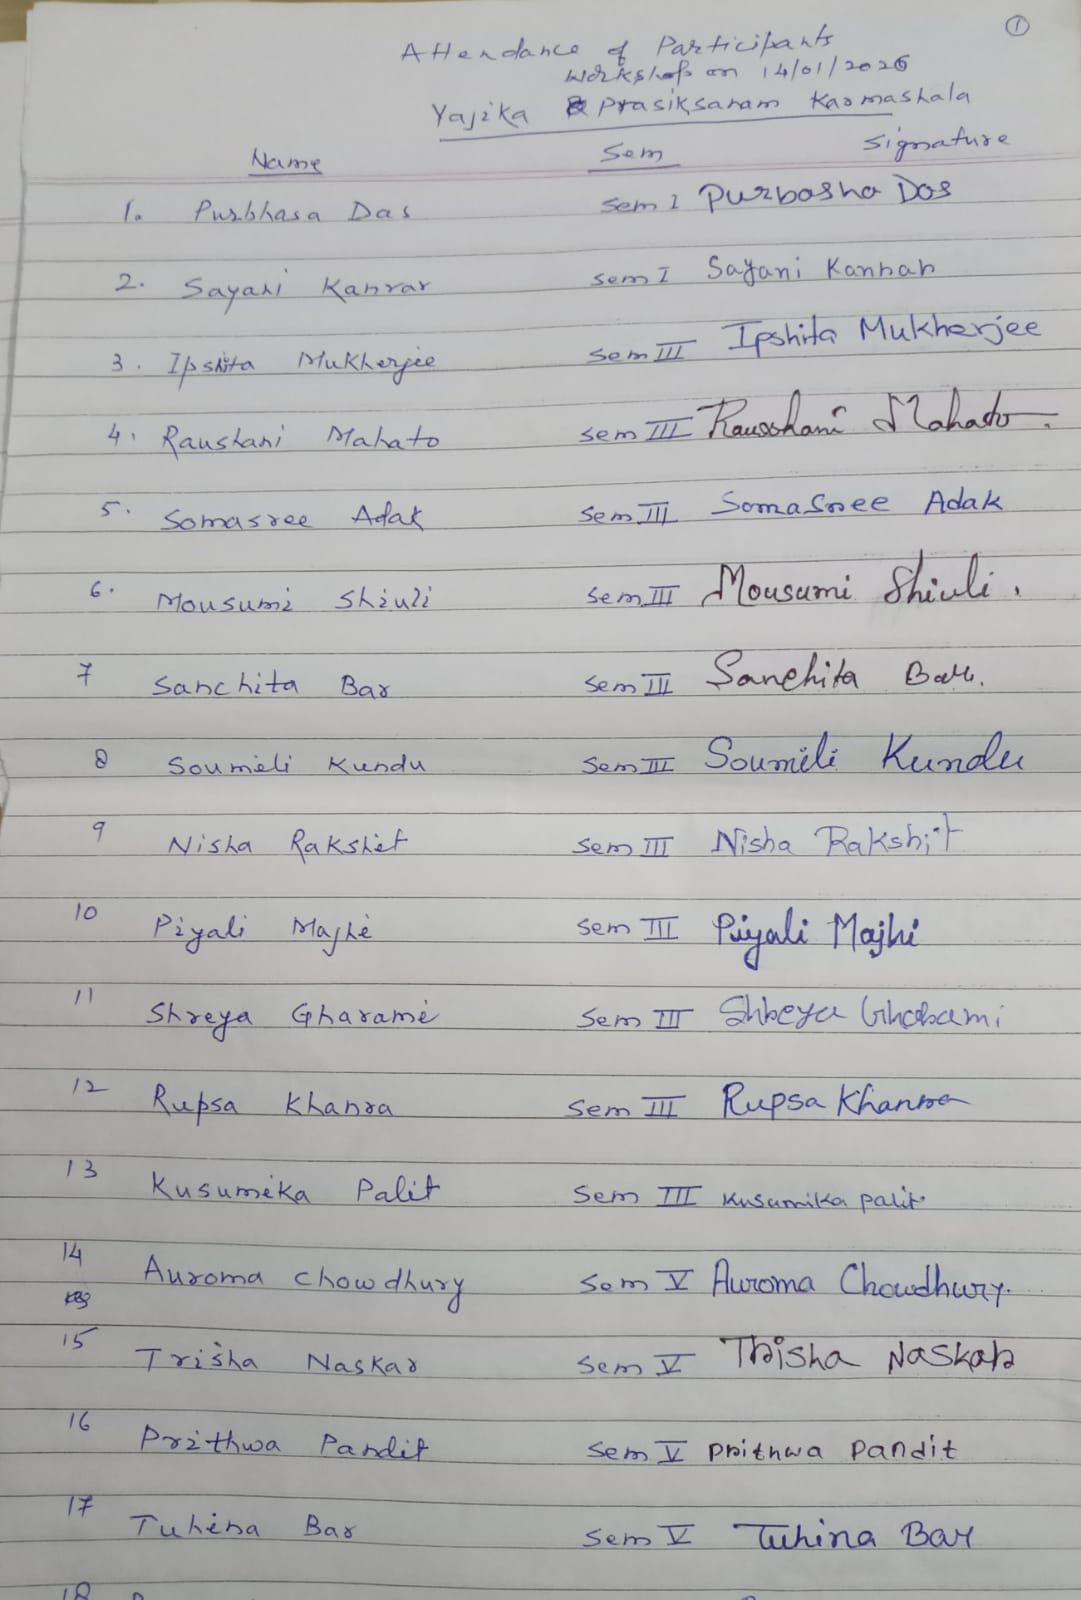 ①
Attendance of Participants
Workshop on 14/01/2026
Yajika Prasiksanam Karmashala
Name Sem Signature
1. Purbhasa Das Sem I Purbasha Das
2. Sayani Kanrar Sem I Sayani Kanrar
3. Ipshita Mukherjee Sem III Ipshita Mukherjee
4. Raushani Mahato Sem III Rausshani Mahato.
5. Somasree Adak Sem III SomaSree Adak
6. Mousumi Shiuli Sem III Mousumi Shiuli.
7 Sanchita Bar Sem III Sanchita Bar.
8 Soumili Kundu Sem III Soumili Kundu
9 Nisha Rakshit Sem III Nisha Rakshit
10 Piyali Majhi Sem III Piyali Majhi
11 Shreya Gharami Sem III Shreya Gharami
12 Rupsa Khanra Sem III Rupsa Khanra
13 Kusumika Palit Sem III Kusumika palit
14 Auroma Chowdhury Sem V Auroma Chowdhury.
15 Trisha Naskar Sem V Trisha Naskar
16 Prithwa Pandit Sem V Prithwa Pandit
17 Tuhina Bar Sem V Tuhina Bar
18